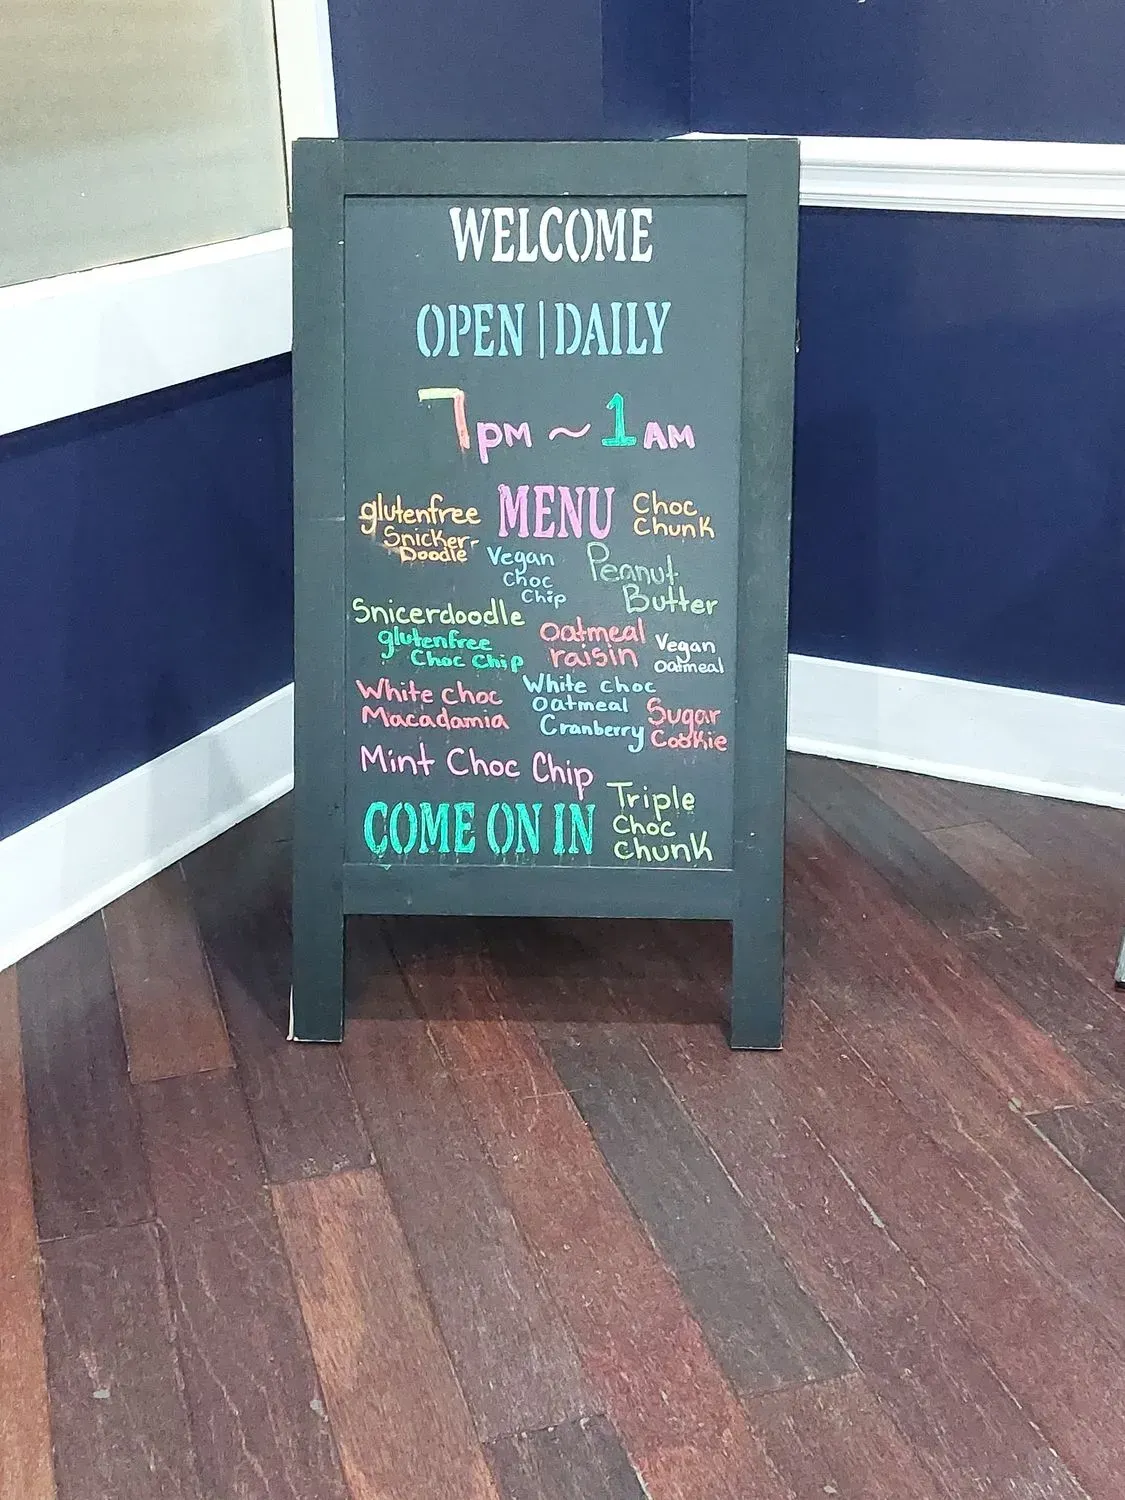 WELCOME
OPEN | DAILY
7pm ~ 1AM
MENU
glutenfree
Snicker-
Doodle
Vegan
Choc
Chip
Choc
Chunk
Peanut
Butter
Snicerdoodle
glutenfree
Choc Chip
Oatmeal
raisin
Vegan
Oatmeal
White Choc
Macadamia
White Choc
Oatmeal
Cranberry
Sugar
Cookie
Mint Choc Chip
Triple
Choc
Chunk
COME ON IN